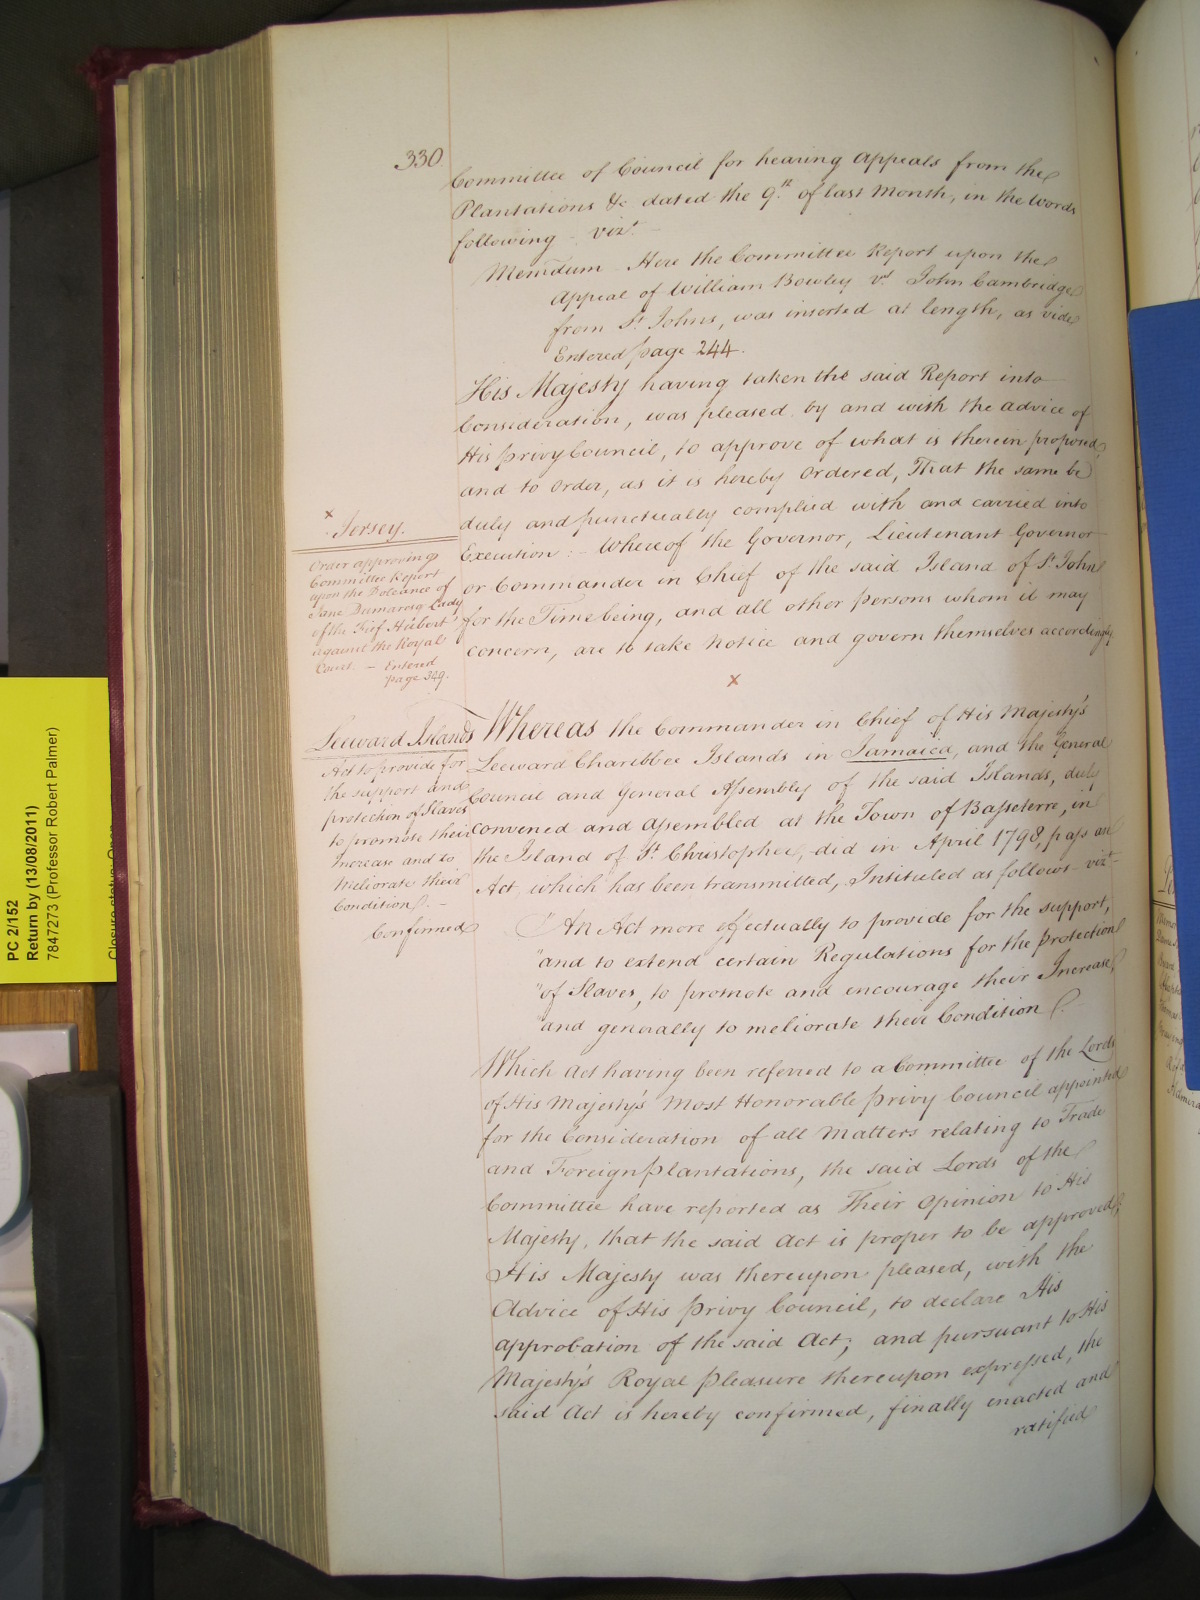 330
Committee of Council for hearing Appeals from the
Plantations &c dated the 9.th of last Month, in the Words
following - vizt.
Memdum Here the Committee Report upon the
Appeal of William Bowley vs. John Cambridge
from St Johns, was inserted at length, as vide
Entered page 244.
His Majesty having taken the said Report into
Consideration, was pleased by and with the advice of
His Privy Council, to approve of what is therein proposed
and to Order, as it is hereby Ordered, That the same be
duly and punctually complied with and carried into
Execution: - Whereof the Governor, Lieutenant Governor
or Commander in Chief of the said Island of St John
for the Time being, and all other Persons whom it may
concern, are to take Notice and govern themselves accordingly
x
x
Jersey.
Order approving
Committee Report
upon the Doleance of
Jane Dumaresq Lady
of the Fief Hubert
against the Royal
Court. - Entered
page 349.
Leeward Islands
Act to provide for
the support and
protection of Slaves
to promote their
Increase and to
Meliorate their
Condition. -
Confirmed
Whereas the Commander in Chief of His Majesty's
Leeward Charibbee Islands in Jamaica, and the General
Council and General Assembly of the said Islands, duly
Convened and Assembled at the Town of Basseterre, in
the Island of St Christopher, did in April 1798, pass an
Act which has been transmitted, Intituled as follows - vizt-
"An Act more effectually to provide for the support,
"and to extend certain Regulations for the Protection
"of Slaves, to promote and encourage their Increase,
"and generally to meliorate their Condition.
Which Act having been referred to a Committee of the Lords
of His Majesty's Most Honorable Privy Council appointed
for the Consideration of all Matters relating to Trade
and Foreign Plantations, the said Lords of the
Committee have reported as Their Opinion to His
Majesty, that the said Act is proper to be approved;
His Majesty was thereupon pleased, with the
Advice of His Privy Council, to declare His
approbation of the said Act; and pursuant to His
Majesty's Royal Pleasure thereupon expressed, the
said Act is hereby confirmed, finally enacted and
ratified
PC 2/152
Return by (13/08/2011)
7847273 (Professor Robert Palmer)